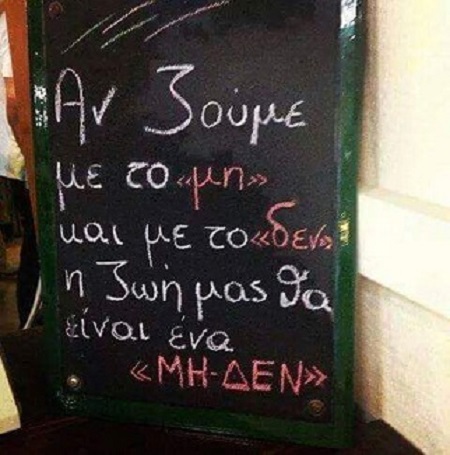 Αν ζούμε
με το «μη»
και με το «δεν»
η ζωή μας θα
είναι ένα
«ΜΗ-ΔΕΝ»